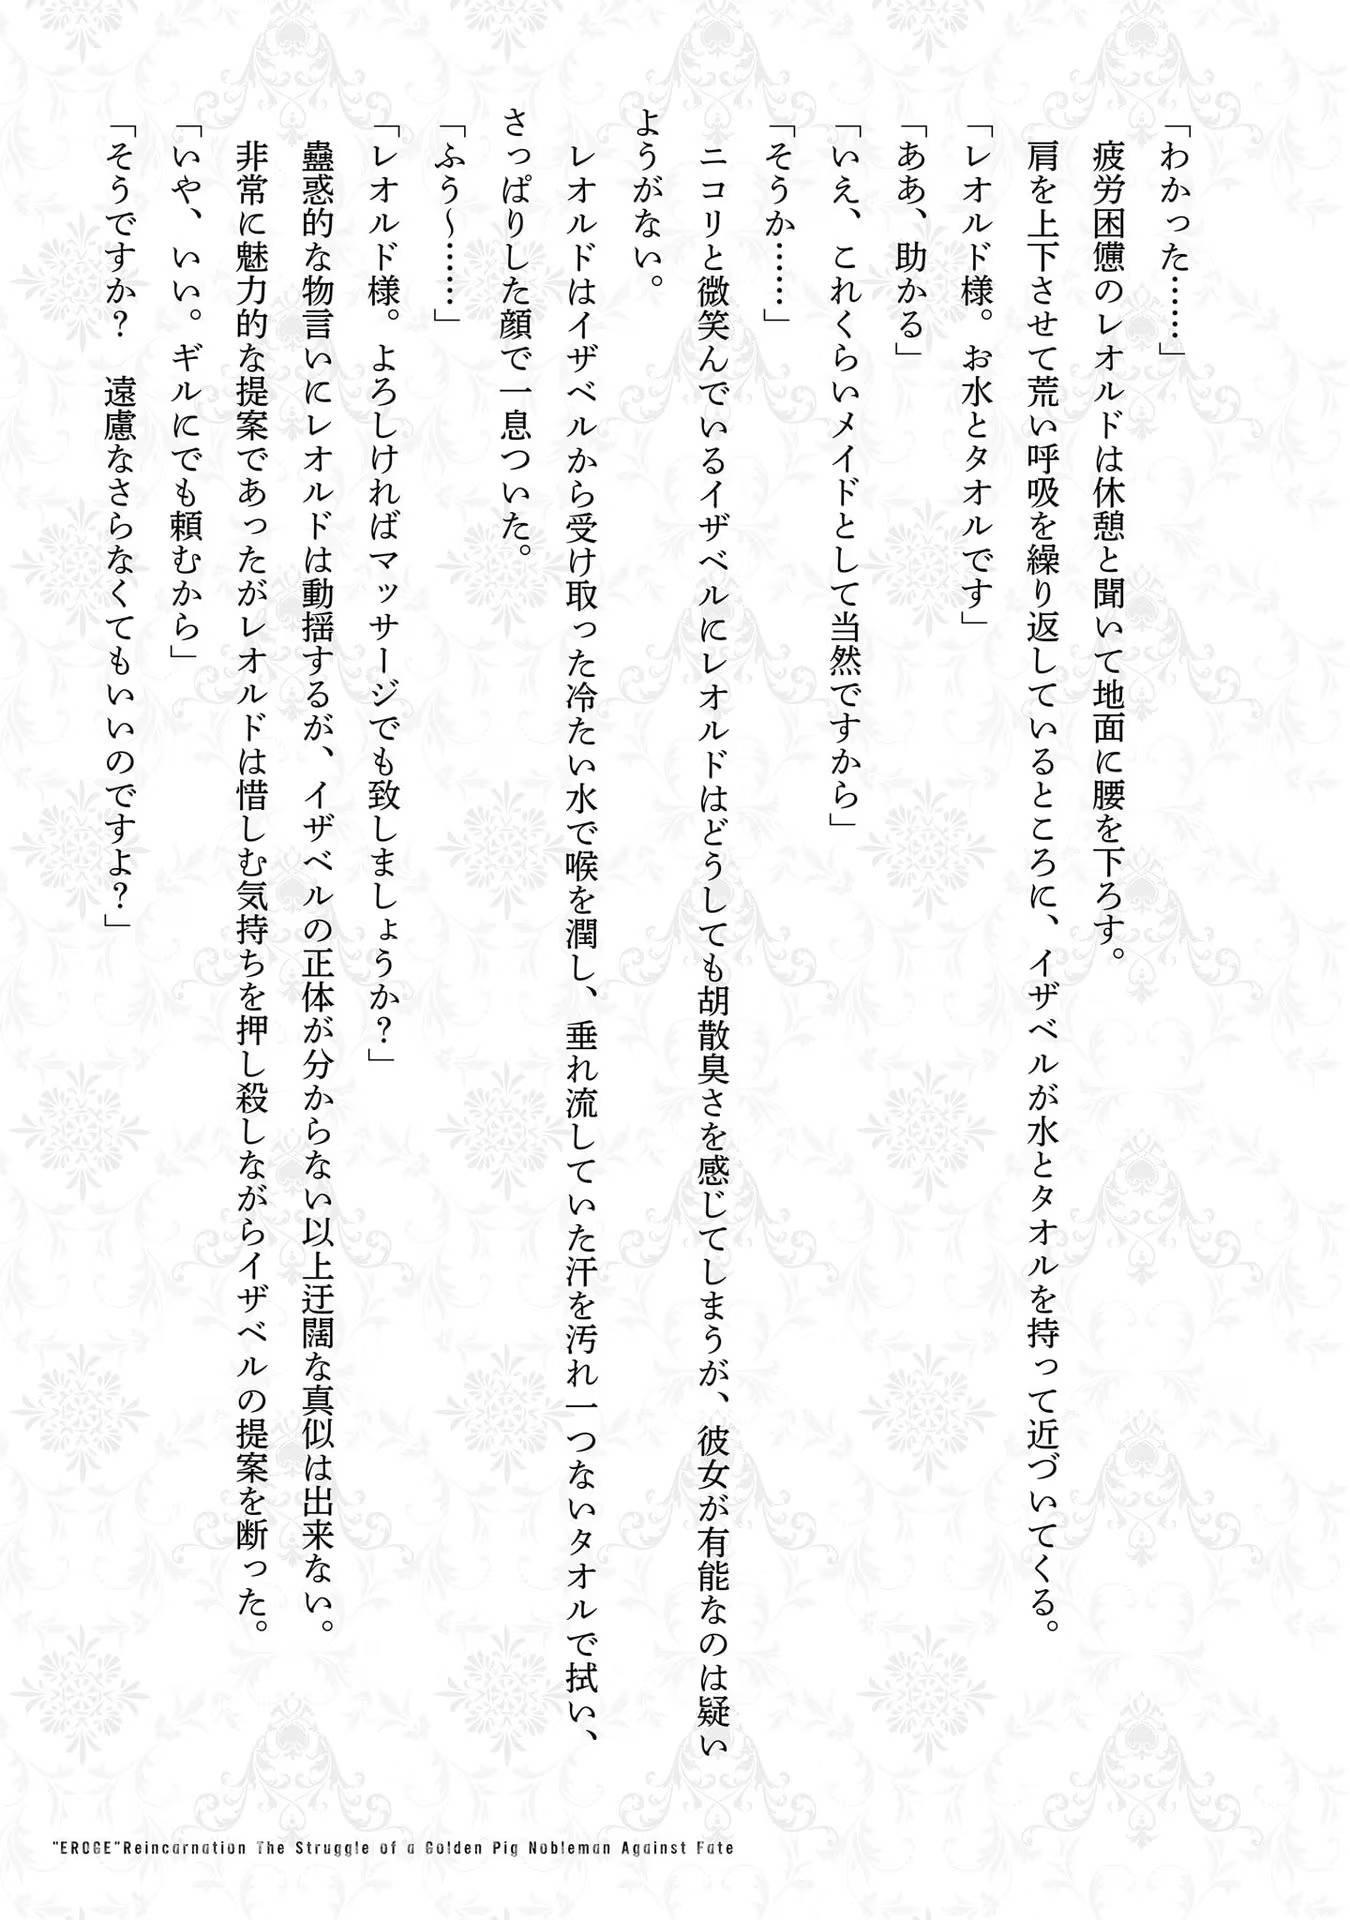 「わかった……」
　疲労困憊のレオルドは休憩と聞いて地面に腰を下ろす。
　肩を上下させて荒い呼吸を繰り返しているところに、イザベルが水とタオルを持って近づいてくる。
「レオルド様。お水とタオルです」
「ああ、助かる」
「いえ、これくらいメイドとして当然ですから」
「そうか……」
　ニコリと微笑んでいるイザベルにレオルドはどうしても胡散臭さを感じてしまうが、彼女が有能なのは疑い
ようがない。
　レオルドはイザベルから受け取った冷たい水で喉を潤し、垂れ流していた汗を汚れ一つないタオルで拭い、
さっぱりした顔で一息ついた。
「ふう～……」
「レオルド様。よろしければマッサージでも致しましょうか？」
　蠱惑的な物言いにレオルドは動揺するが、イザベルの正体が分からない以上迂闊な真似は出来ない。
　非常に魅力的な提案であったがレオルドは惜しむ気持ちを押し殺しながらイザベルの提案を断った。
「いや、いい。ギルにでも頼むから」
「そうですか？　遠慮なさらなくてもいいのですよ？」
"EROGE"Reincarnation The Struggle of a Golden Pig Nobleman Against Fate